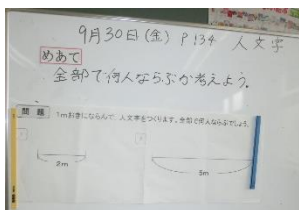 9月30日(金) P134 人文字
めあて
全部で何人ならぶか考えよう。
問題 1mおきにならんで、人文字をつくります。全部で何人ならぶでしょう。
2m 5m